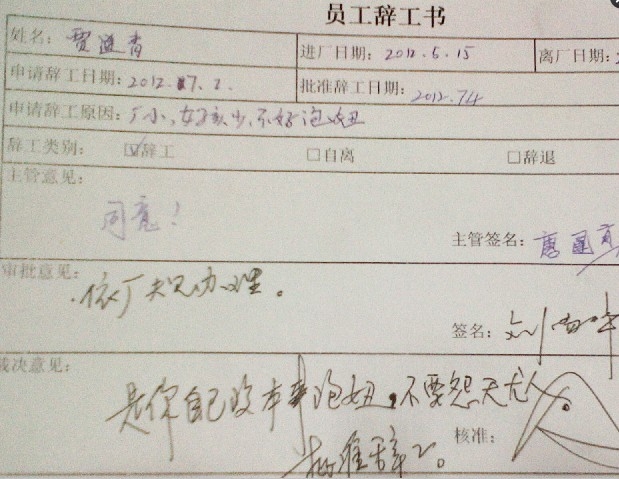 员工辞工书
姓名：贾进青 进厂日期：2012.5.15 离厂日期：
申请辞工日期：2012.7.2. 批准辞工日期：2012.7.4
申请辞工原因：厂小，女孩少，不好泡妞
辞工类别： ☑辞工 □自离 □辞退
主管意见：
同意！
主管签名：
审批意见：
依厂规办理。
签名：
裁决意见：
是你自己没本事泡妞，不要怨天尤人。
批准辞工。
核准：